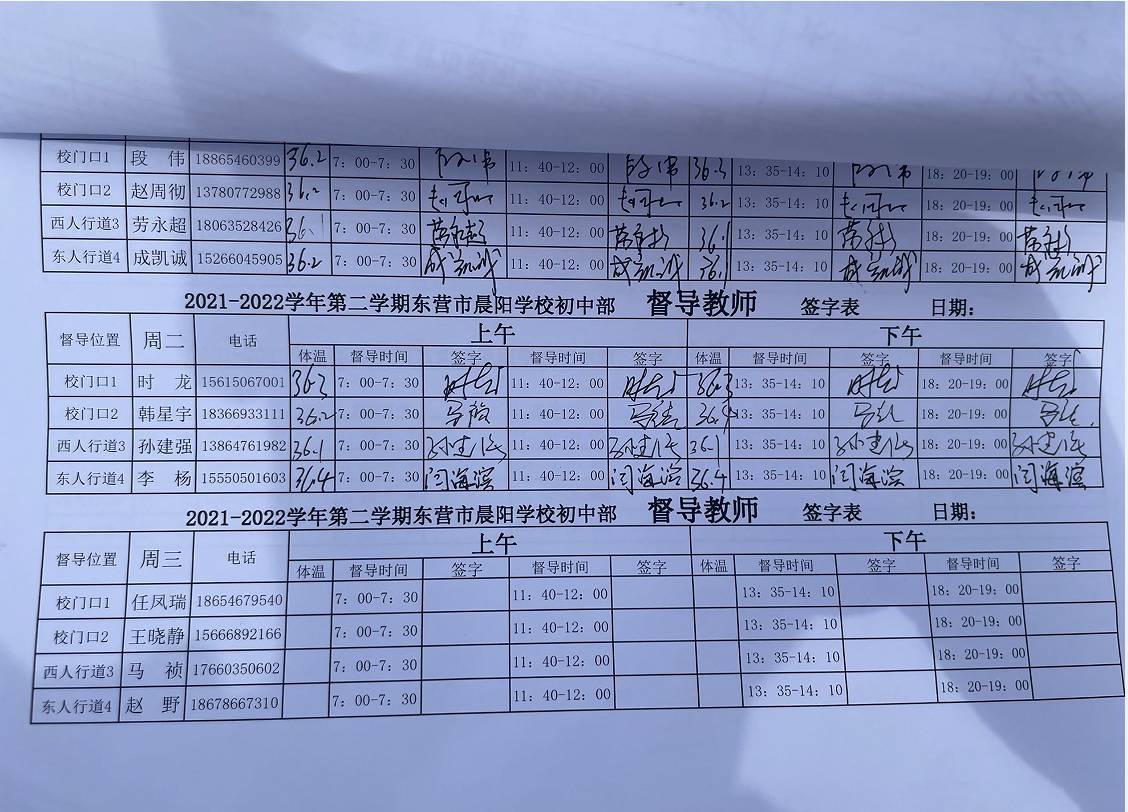 校门口1 段 伟 18865460399 36.2 7：00-7：30 段伟 11：40-12：00 段伟 36.3 13：35-14：10 段伟 18：20-19：00
校门口2 赵周彻 13780772988 36.2 7：00-7：30 11：40-12：00 36.2 13：35-14：10 18：20-19：00
西人行道3 劳永超 18063528426 36.1 7：00-7：30 劳永超 11：40-12：00 劳永超 36.1 13：35-14：10 劳永超 18：20-19：00 劳永超
东人行道4 成凯诚 15266045905 36.2 7：00-7：30 成凯诚 11：40-12：00 成凯诚 36.1 13：35-14：10 成凯诚 18：20-19：00 成凯诚
2021-2022学年第二学期东营市晨阳学校初中部 督导教师 签字表 日期：
督导位置 周二 电话 上午 下午
体温 督导时间 签字 督导时间 签字 体温 督导时间 签字 督导时间 签字
校门口1 时 龙 15615067001 36.3 7：00-7：30 时龙 11：40-12：00 时龙 36.3 13：35-14：10 时龙 18：20-19：00 时龙
校门口2 韩星宇 18366933111 36.2 7：00-7：30 11：40-12：00 13：35-14：10 18：20-19：00
西人行道3 孙建强 13864761982 36.1 7：00-7：30 孙建强 11：40-12：00 孙建强 36.1 13：35-14：10 孙建强 18：20-19：00 孙建强
东人行道4 李 杨 15550501603 36.4 7：00-7：30 闫海滨 11：40-12：00 闫海滨 36.4 13：35-14：10 闫海滨 18：20-19：00 闫海滨
2021-2022学年第二学期东营市晨阳学校初中部 督导教师 签字表 日期：
督导位置 周三 电话 上午 下午
体温 督导时间 签字 督导时间 签字 体温 督导时间 签字 督导时间 签字
校门口1 任凤瑞 18654679540 7：00-7：30 11：40-12：00 13：35-14：10 18：20-19：00
校门口2 王晓静 15666892166 7：00-7：30 11：40-12：00 13：35-14：10 18：20-19：00
西人行道3 马 祯 17660350602 7：00-7：30 11：40-12：00 13：35-14：10 18：20-19：00
东人行道4 赵 野 18678667310 7：00-7：30 11：40-12：00 13：35-14：10 18：20-19：00